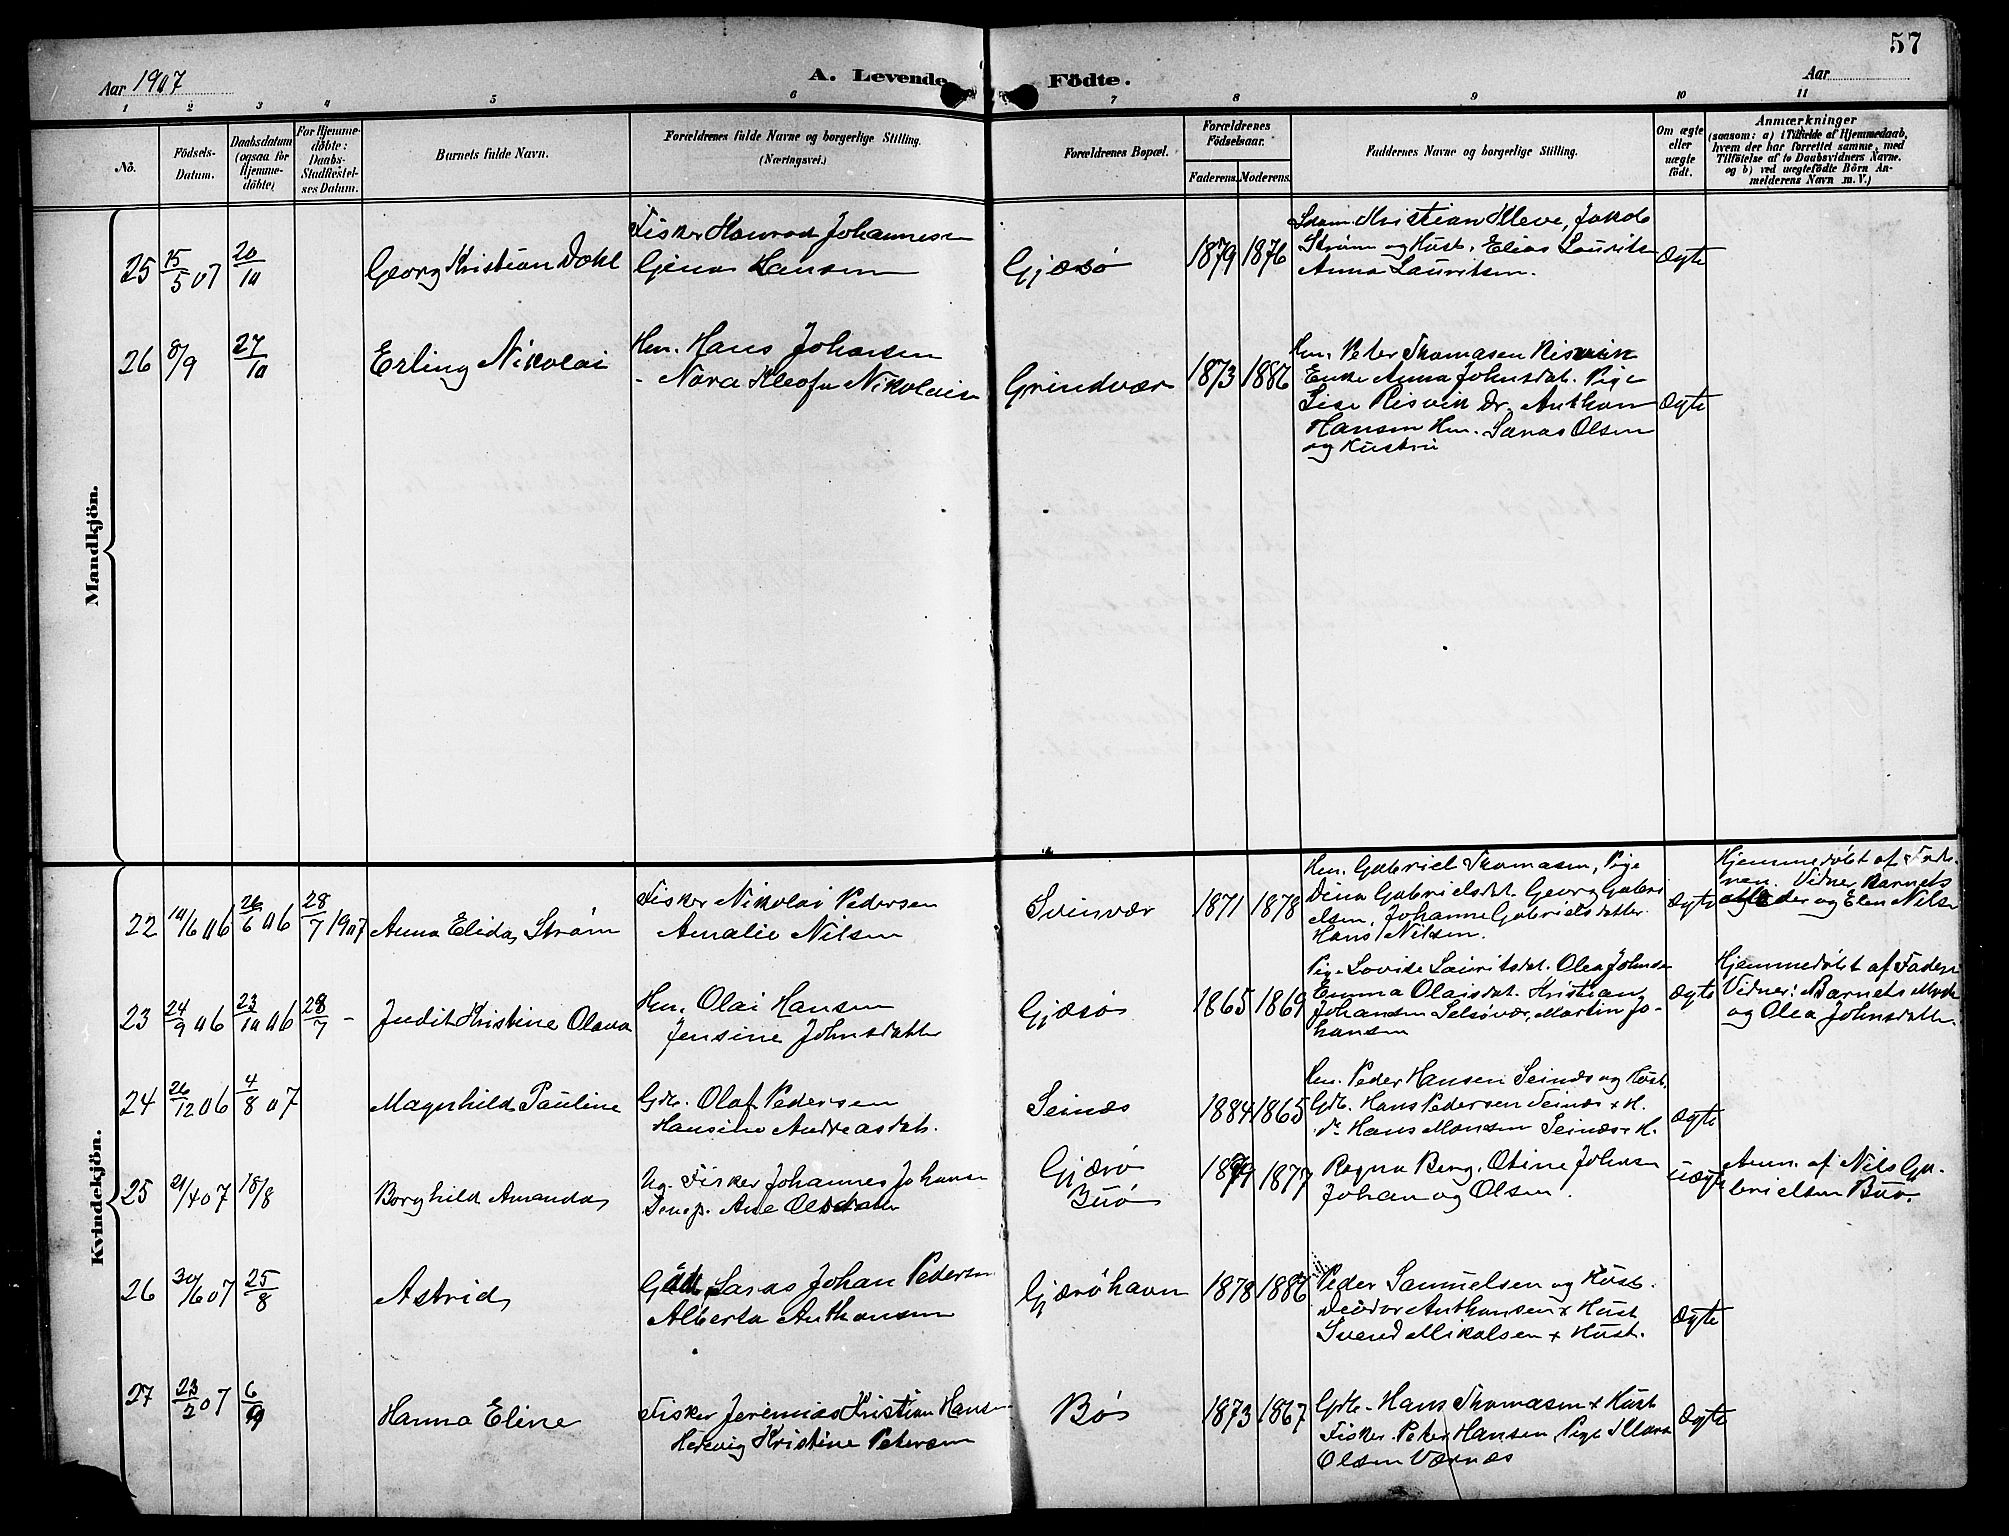 57
Aar 1907
A. Levende Födte.
Aar
1 2 3 4 5 6 7 8 9 10 11
No.
Födsels-
Datum.
Daabsdatum
(ogsaa for
Hjemme-
døbte)
For Hjemme-
døbte:
Daabs-
Stadfæstel-
ses Datum.
Barnets fulde Navn.
Forældrenes fulde Navne og borgerlige Stilling.
(Næringsvei.)
Forældrenes Bopæl.
Forældrenes
Födselsaar.
Faderens. Moderens.
Faddernes Navne og borgerlige Stilling.
Om ægte
eller
uægte
födt.
Anmærkninger
(saasom: a) i Tilfælde af Hjemmedaab,
hvem der har forrettet samme, med
Tilföielse af to Daabsvidners Navne.
og b) ved uægtefödte Börn An-
melderens Navn m. V.)
Mandkjön.
25 15/5 07 20/10 Georg Kristian Dahl
Fisker Konrad Johannesen
Gina Hansen
Gjæsø 1879 1876
Kristian Kleve, Jakob
Strøm og Hust. Elias Lauritsen
Anna Lauritsen.
Ægte
26 8/9 27/10 Erling Nikolai
Hm. Hans Johansen
- Nora Kleofa Nikolaisen
Grindvær 1873 1886
Hm. Peter Thomasen Risvik
Enke Anna Johnsdat. Pige
Lise Risvik Dr. Anthon
Hansen Hm. Lanas Olsen
og Hustru
Ægte
Kvindekjön.
22 10/6 06 26/6 06 28/7 1907 Anna Elida Strøm
Fisker Nikolai Pedersen
Amalie Nilsen
Svinvær 1871 1878
Hm. Gabriel Thomasen, Pige
Dina Gabrielsdat. Georg Gabri
elsen, Johanne Gabrielsdatter
Hans Nilsen.
Ægte
Hjemmedøbt af Fade-
ren. Vidner Barnets
Moder og Elen Nilsen
23 24/9 06 23/10 06 28/7 - Judit Kristine Olava
Hm. Olai Hansen
Jensine Johnsdatter
Gjæsø 1865 1869
Pige Lovise Lauritsdat. Olea Johnsda
Emma Olaisdat. Kristian
Johansen Selsøvær, Martin Jo-
hansen
Ægte
Hjemmedøbt af Faderen
Vidner: Barnets Moder
og Olea Johnsdatter.
24 26/12 06 4/8 07 Magnhild Pauline
Grb. Olaf Pedersen
Hansine Andreasdat.
Seinæs 1884 1865
Hm. Peder Hansen Seinæs og Hust.
Grb. Hans Pedersen Seinæs + H.
Dr. Hans Monsen Seinæs + H.
Ægte
25 21/4 07 18/8 Borghild Amanda
Ug. Fisker Johannes Johansen
Tenep. Ane Olsdatter
Gjærø
Buø
1879 1877
Ragna Berg. Otine Johnsen
Johan og Olsen.
Uægte
Anm. af Nils Ga-
brielsen Buø.
26 30/6 07 25/8 Astrid
Lanas Johan Pedersen
Alberta Anthonsen
Gjærøhavn 1878 1886
Peder Samuelsen og Hust.
Teodor Anthonsen + Hust
Svend Mikalsen + Hust.
Ægte
27 23/2 07 6/9 Hanna Eline
Fisker Jeremias Kristian Hansen
Hedevig Kristine Petersen
Bø 1873 1867
Grb. Hans Thomasen + Hust
Fisker Peter Hansen, Pige Mara
Olsen Værnæs
Ægte